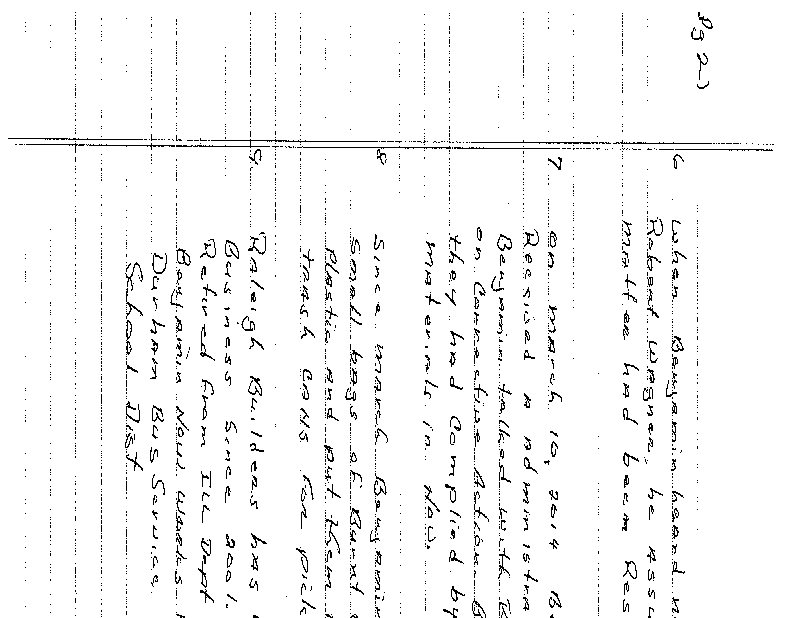 Pg 2)
6 When Benjamin heard
Robert Wagner, he assu
matter had been Res
7 on march 10, 2014 B
Recsised a administra
Benjamin talked with
on Corrective Action B
they had Complied by
materials in Nov.
8 Since march Benjamin
small bags of Burnt
Plastic and put them
trash cans for pick
9. Raleigh Builders has
Business since 2001.
Retired from Ill Dept
Benjamin Now works
Durham Bus Service
School Dist